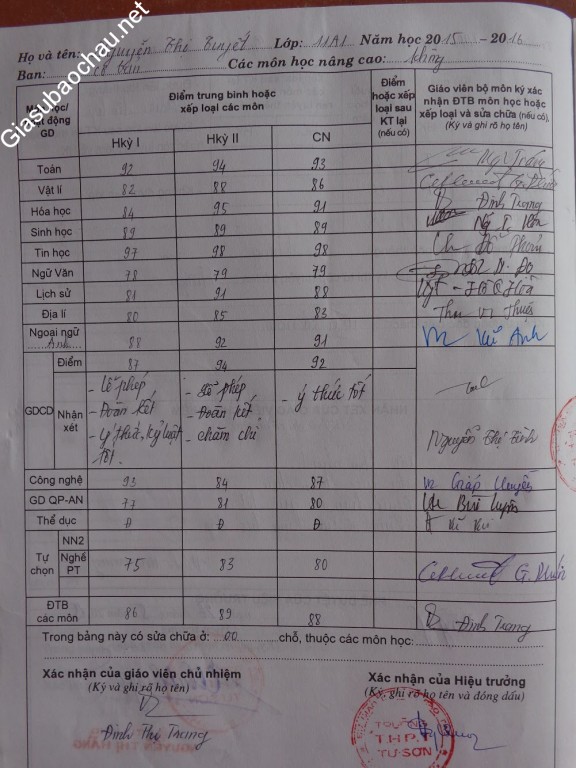 Giasubaochau.net
Họ và tên: Nguyễn Thị Tuyết Lớp: 11A1 Năm học 2015 - 2016
Ban: Cơ bản Các môn học nâng cao: không
Môn học/ Hoạt động GD
Điểm trung bình hoặc xếp loại các môn
Điểm hoặc xếp loại sau KT lại (nếu có)
Giáo viên bộ môn ký xác nhận ĐTB môn học hoặc xếp loại và sửa chữa (nếu có), (Ký và ghi rõ họ tên)
HKỳ I HKỳ II CN
Toán 92 94 93
Vật lí 82 88 86
Hóa học 84 95 91 Đinh Trung
Sinh học 89 89 89
Tin học 97 98 98
Ngữ Văn 78 79 79
Lịch sử 81 91 88
Địa lí 80 85 83
Ngoại ngữ Anh 88 92 91
GDCD
Điểm 87 94 92
Nhận xét
- Lễ phép - Lễ phép - ý thức tốt
- Đoàn kết - Đoàn kết
- Ý thức, kỷ luật tốt. - chăm chỉ
Nguyễn Thị Tình
Công nghệ 93 84 87
GD QP-AN 77 81 80
Thể dục Đ Đ Đ
Tự chọn
NN2
Nghề PT 75 83 80
ĐTB các môn 86 89 88 Đinh Trung
Trong bảng này có sửa chữa ở: 00 chỗ, thuộc các môn học:
Xác nhận của giáo viên chủ nhiệm Xác nhận của Hiệu trưởng
(Ký và ghi rõ họ tên) (Ký, ghi rõ họ tên và đóng dấu)
Đinh Thị Trung
TRƯỜNG
T.H.P.T
TỪ SƠN